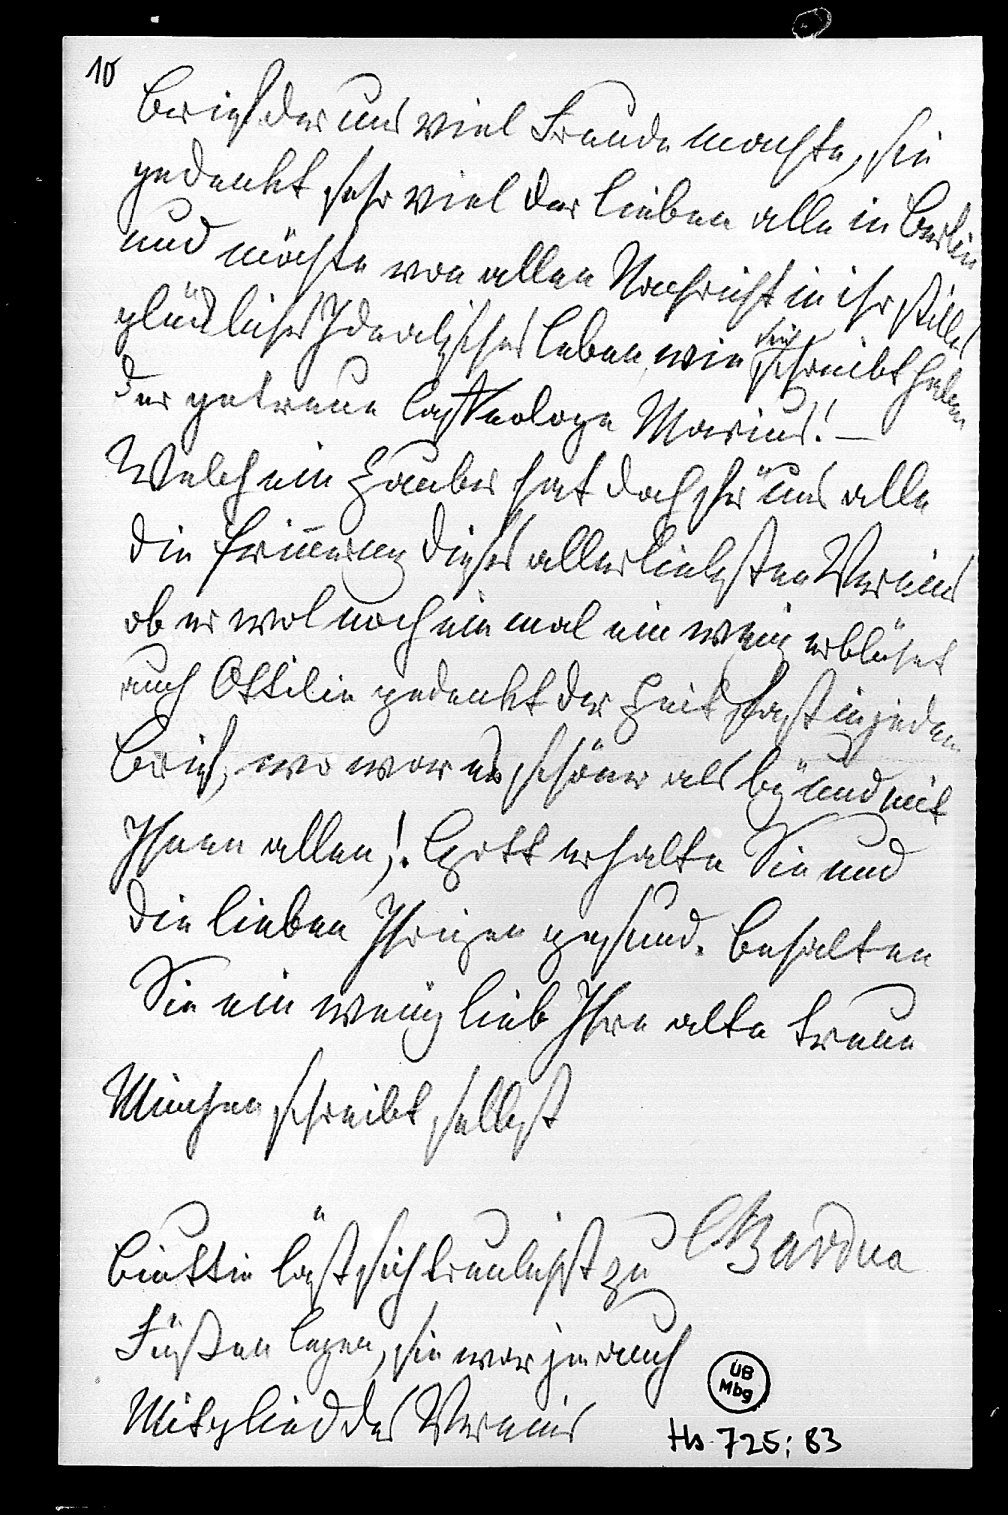 10
Brief der uns viel Freude machte, sie
gedenkt sehr viel der lieben alle in Berlin
und möchte von allen Nachricht in ihr stilles
glückliches Idealisches Leben wie sie schreibt haben
der getreue Marius! —
Welch ein Zauber hat doch für uns alle
die Erinnerung dieses allerliebsten Vereins
ob er wol noch ein mal ein wenig erblühet
auch Ottilie gedenkt der Zeit fast in jedem
Brief, wo war es schöner als bey und mit
Ihnen allen!. Gott erhalte Sie und
die lieben Ihrigen gesund. Behalten
Sie ein wenig lieb Ihre alte treue
Minchen schreibt selbst
CBardua
läst sich treulichst zu
Füßen legen, sie war ja auch
Mitglied des Vereins
UB
Mbg
Hs. 725: 83